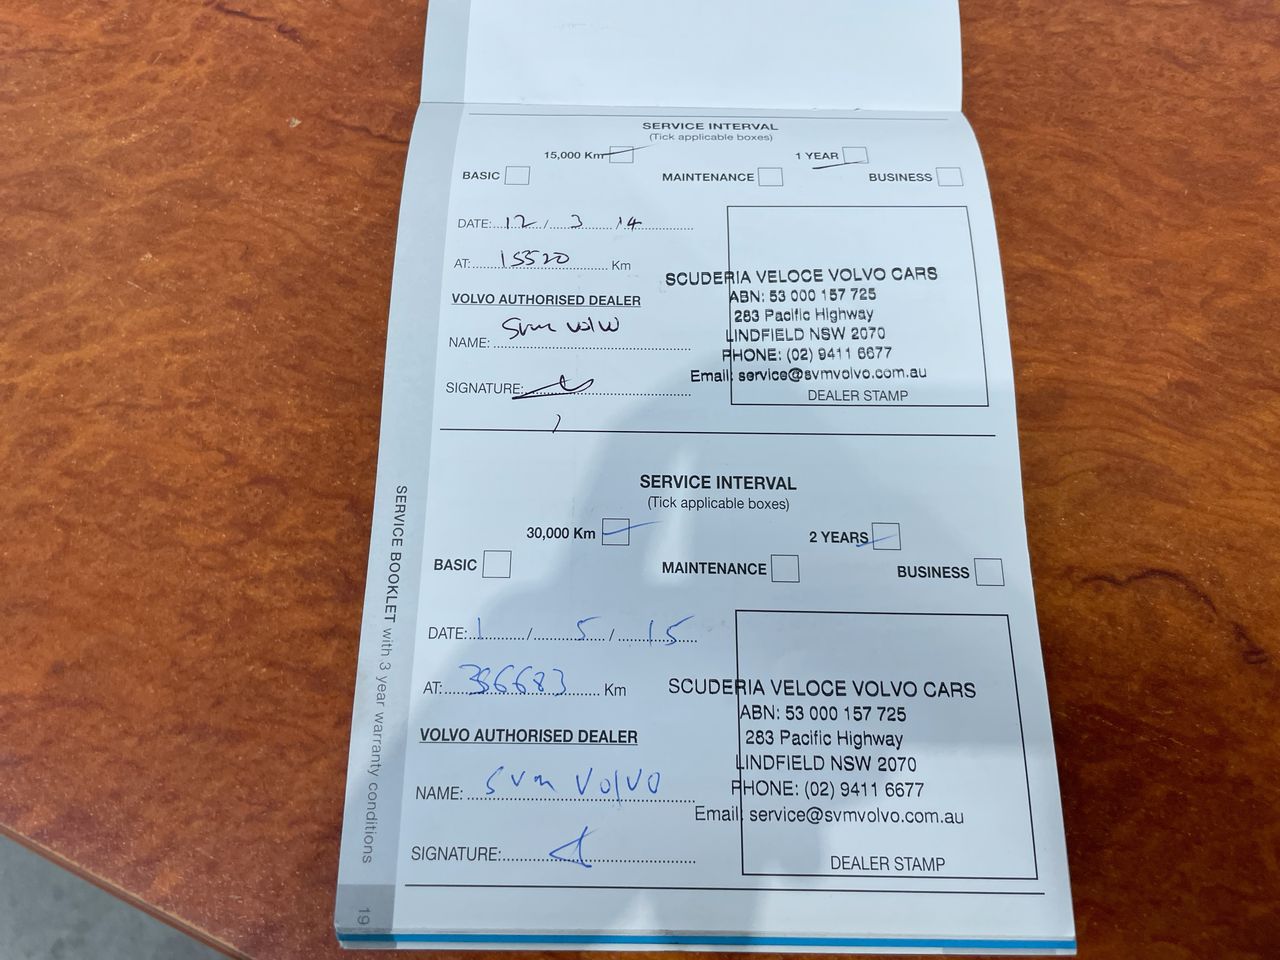 SERVICE INTERVAL
(Tick applicable boxes)
15,000 Km 1 YEAR
BASIC MAINTENANCE BUSINESS
DATE: 12 / 3 / 14
AT: 15520 Km
VOLVO AUTHORISED DEALER
NAME: Svm Volvo
SIGNATURE:
SCUDERIA VELOCE VOLVO CARS
ABN: 53 000 157 725
283 Pacific Highway
LINDFIELD NSW 2070
PHONE: (02) 9411 6677
Email: service@svmvolvo.com.au
DEALER STAMP
SERVICE INTERVAL
(Tick applicable boxes)
30,000 Km 2 YEARS
BASIC MAINTENANCE BUSINESS
DATE: 1 / 5 / 15
AT: Km
VOLVO AUTHORISED DEALER
NAME: Svm Volvo
SIGNATURE:
SCUDERIA VELOCE VOLVO CARS
ABN: 53 000 157 725
283 Pacific Highway
LINDFIELD NSW 2070
PHONE: (02) 9411 6677
Email: service@svmvolvo.com.au
DEALER STAMP
SERVICE BOOKLET with 3 year warranty conditions
19